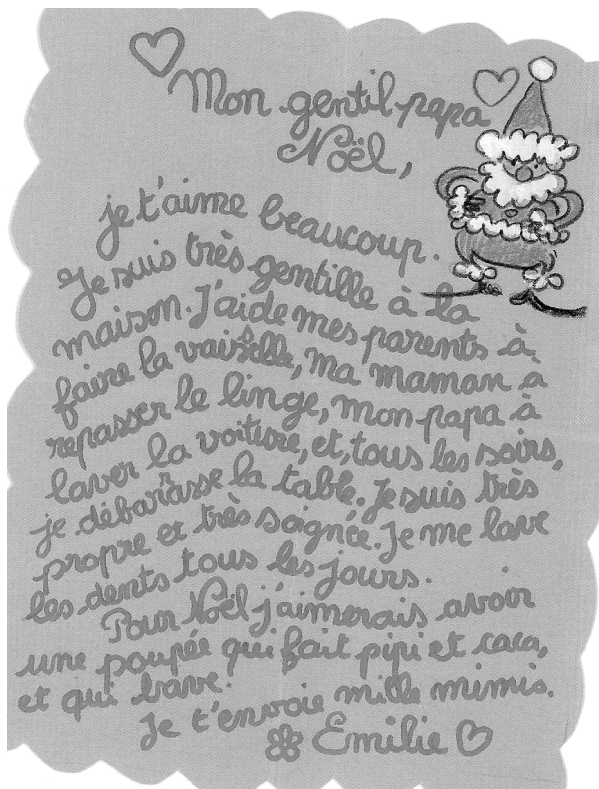 Mon gentil papa
Noël,
je t'aime beaucoup.
Je suis très gentille à la
maison. J'aide mes parents à
faire la vaisselle, ma maman à
repasser le linge, mon papa à
laver la voiture, et, tous les soirs,
je débarrasse la table. Je suis très
propre et très soignée. Je me lave
les dents tous les jours.
Pour Noël j'aimerais avoir
une poupée qui fait pipi et caca,
et qui bave.
Je t'envoie mille mimis.
Emilie